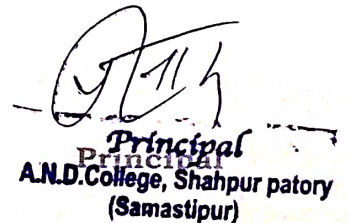 Principal
Principal
A.N.D.College, Shahpur patory
(Samastipur)